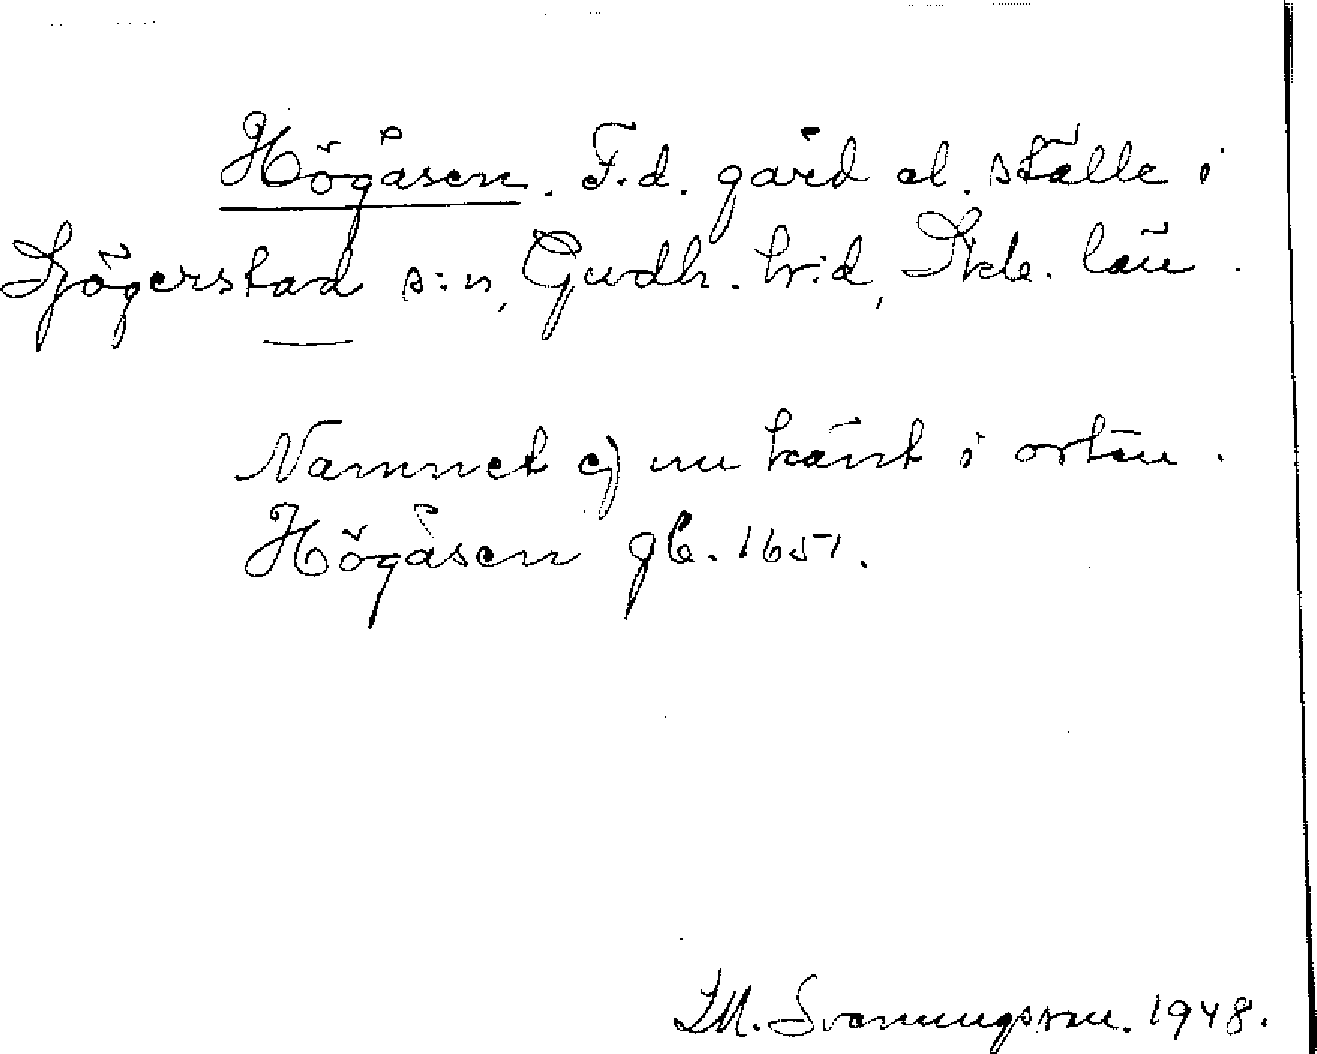 Högåsen. F.d. gård el. ställe i
Sjögerstad s:n, Gudh. h:d, Skb. län.
Namnet ej nu känt i orten.
Högåsen gb. 1651.
M. Svenungsson. 1948.